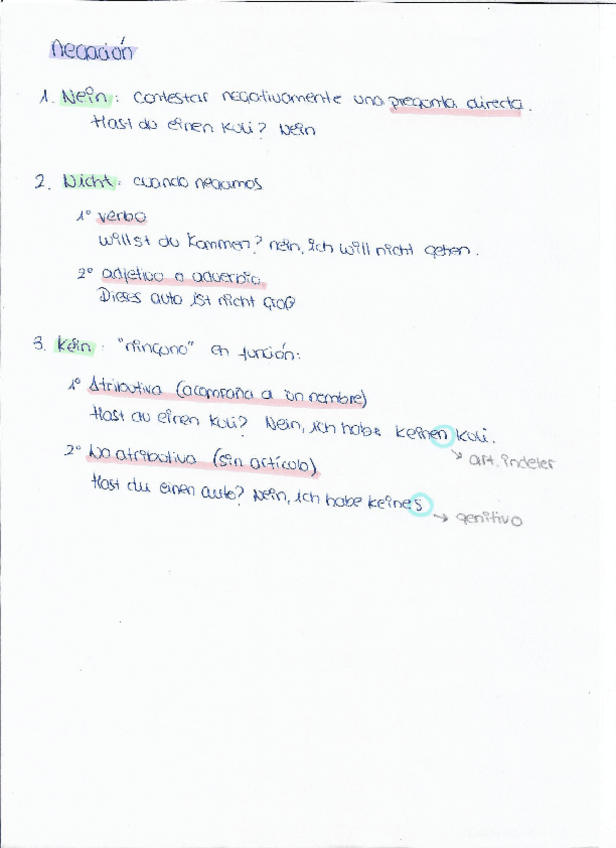 negación
1. Nein: contestar negativamente una pregunta directa.
Hast du einen Kuli? Nein
2. Nicht: cuando negamos
1º verbo
willst du kommen? nein, ich will nicht gehen.
2º adjetivo o adverbio.
Dieses auto ist nicht groß
3. Kein: "ninguno" en función:
1º Atributiva (acompaña a un nombre)
Hast du einen Kuli? Nein, ich habe keinen Kuli.
→ art. indeter
2º No atributiva (sin artículo)
Hast du einen auto? Nein, ich habe keines
→ genitivo